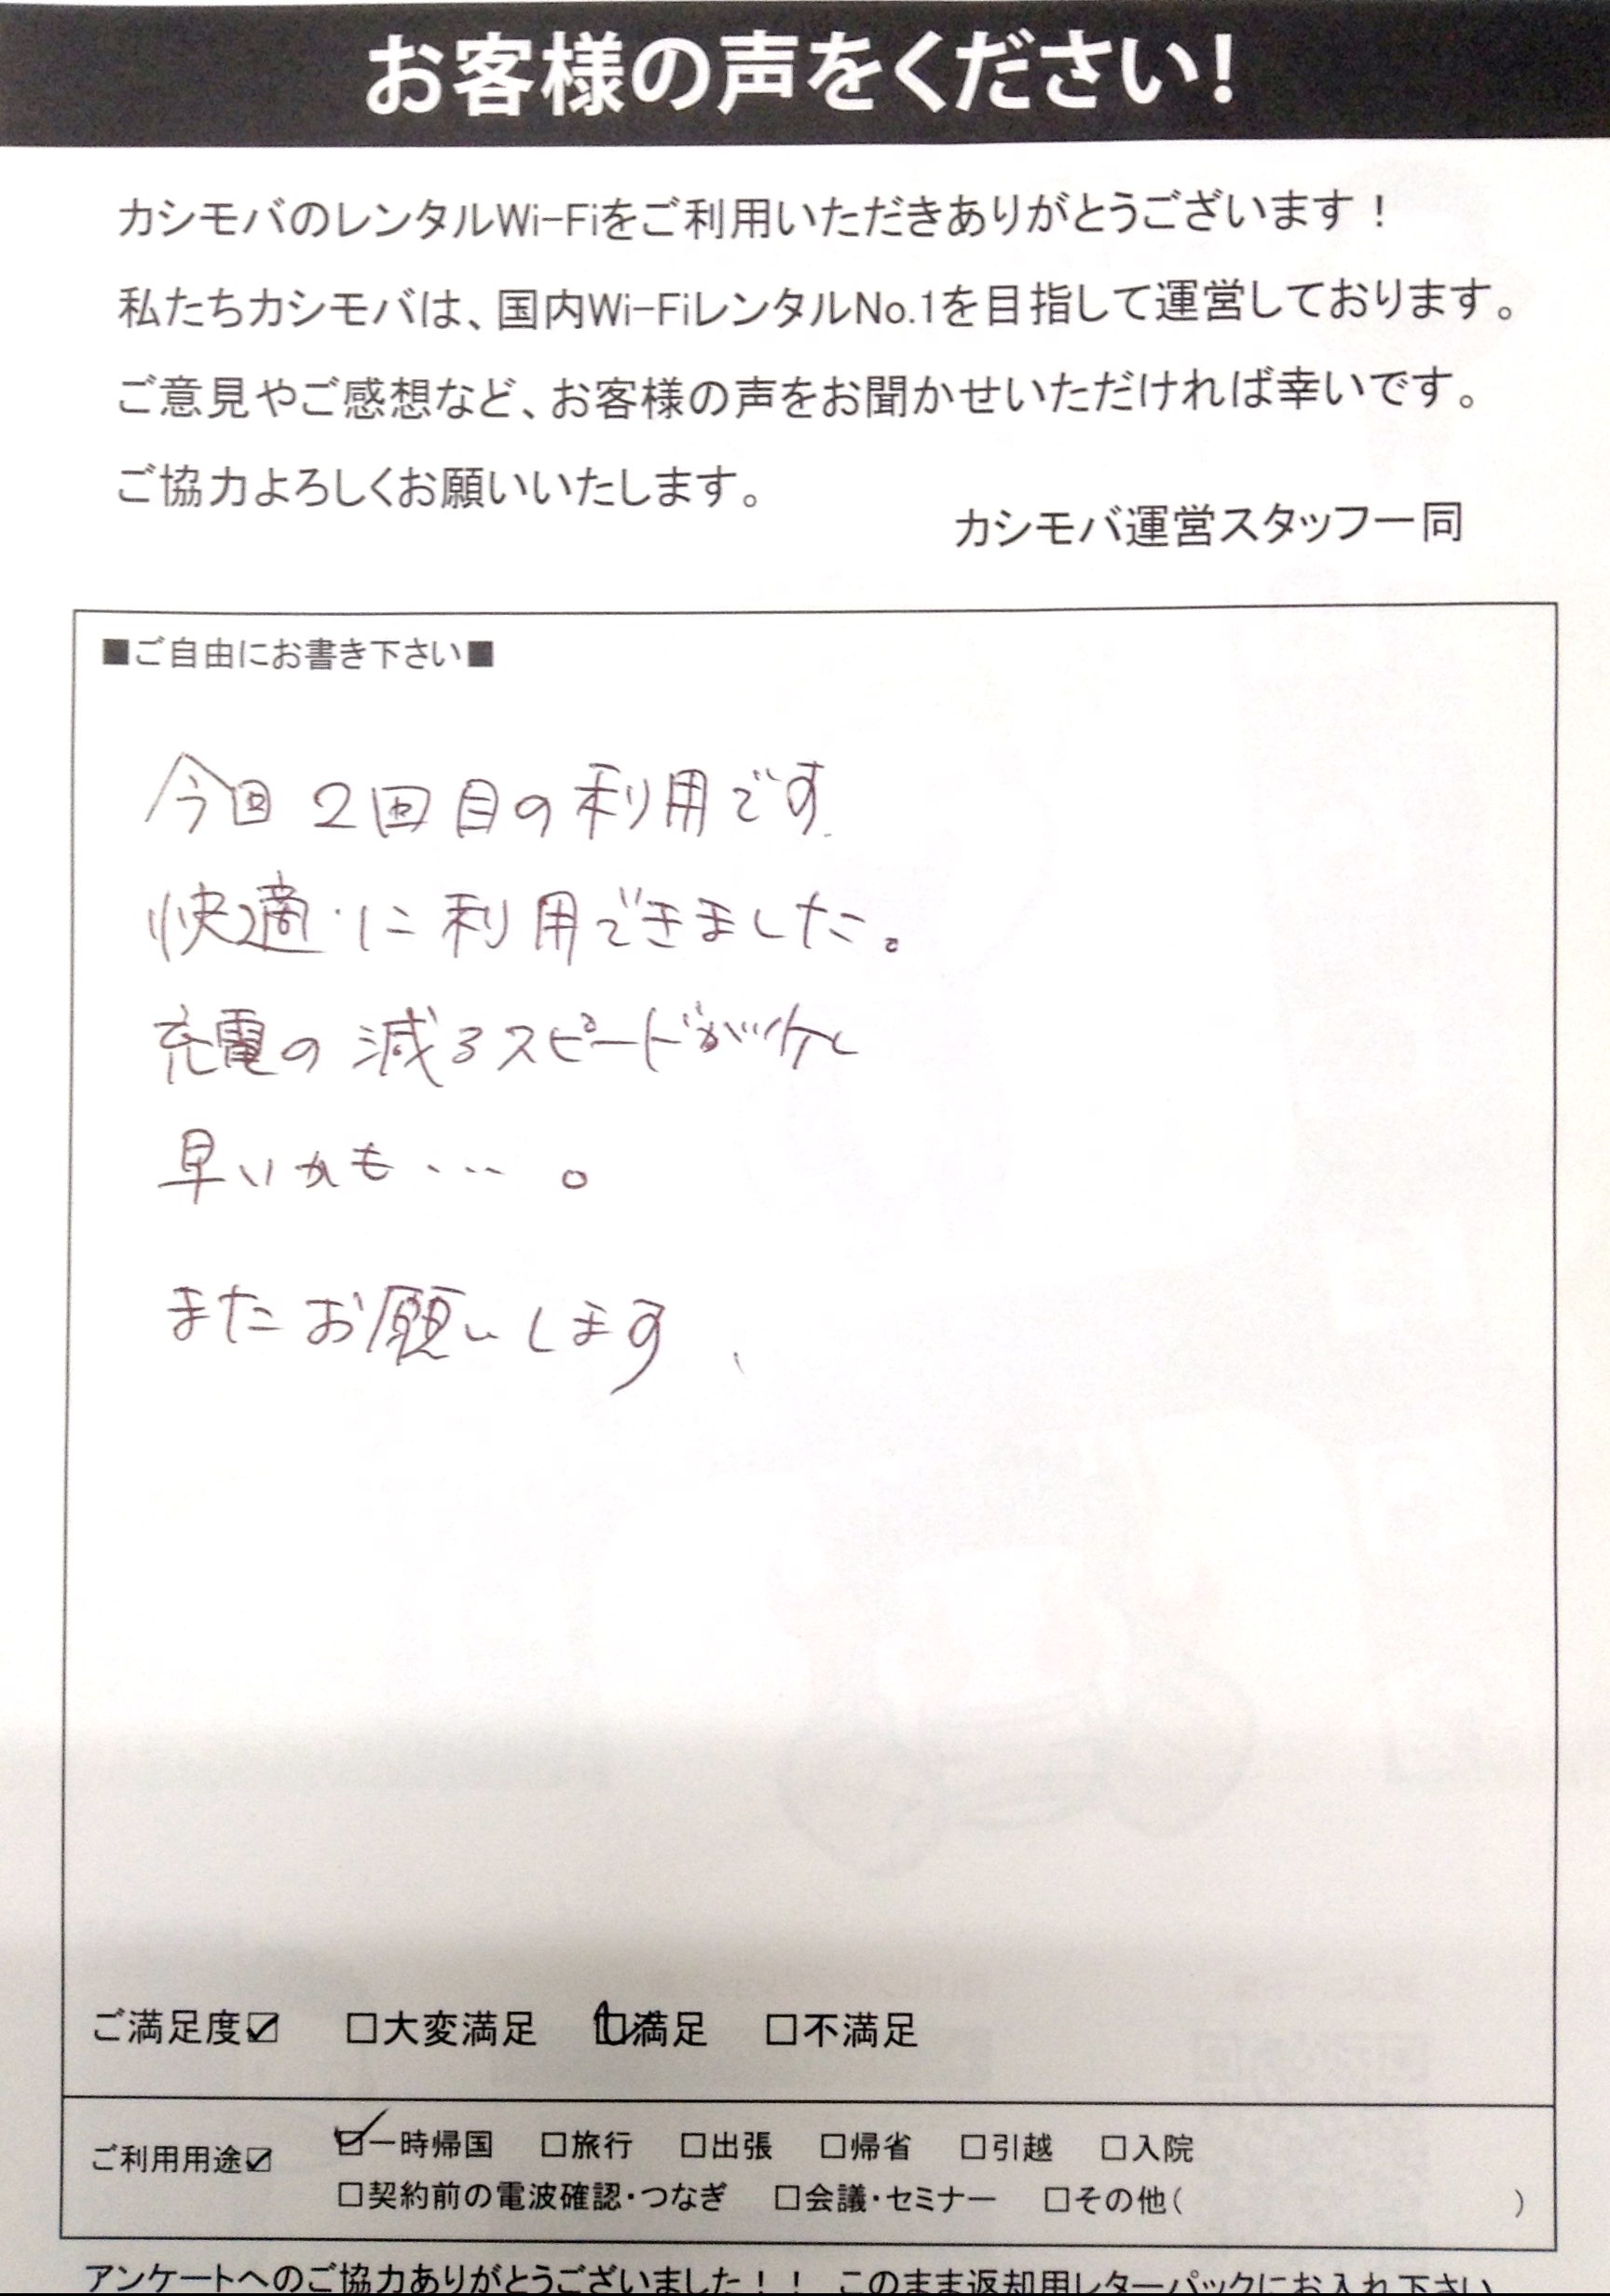 お客様の声をください!
カシモバのレンタルWi-Fiをご利用いただきありがとうございます！
私たちカシモバは、国内Wi-FiレンタルNo.1を目指して運営しております。
ご意見やご感想など、お客様の声をお聞かせいただければ幸いです。
ご協力よろしくお願いいたします。
カシモバ運営スタッフ一同
■ご自由にお書き下さい■
今回2回目の利用です.
快適に利用できました。
充電の減るスピードが
早いかも・・・。
またお願いします
ご満足度☑ □大変満足 ☑満足 □不満足
ご利用用途☑ ☑一時帰国 □旅行 □出張 □帰省 □引越 □入院
□契約前の電波確認・つなぎ □会議・セミナー □その他( )
アンケートへのご協力ありがとうございました！！ このまま返却用レターパックにお入れ下さい